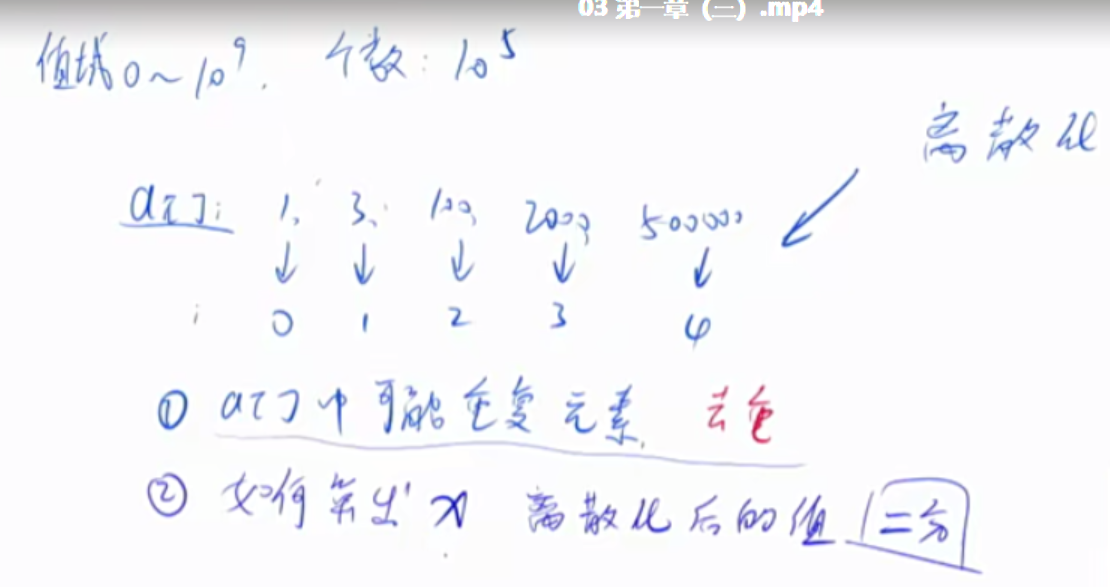 03 第一章（二）.mp4
值域0~10⁹. 个数: 10⁵
离散化
a[]: 1, 3, 100, 2000, 500000
↓ ↓ ↓ ↓ ↓
0 1 2 3 4
① a[]中可能重复元素. 去重
② 如何算出x 离散化后的值 二分